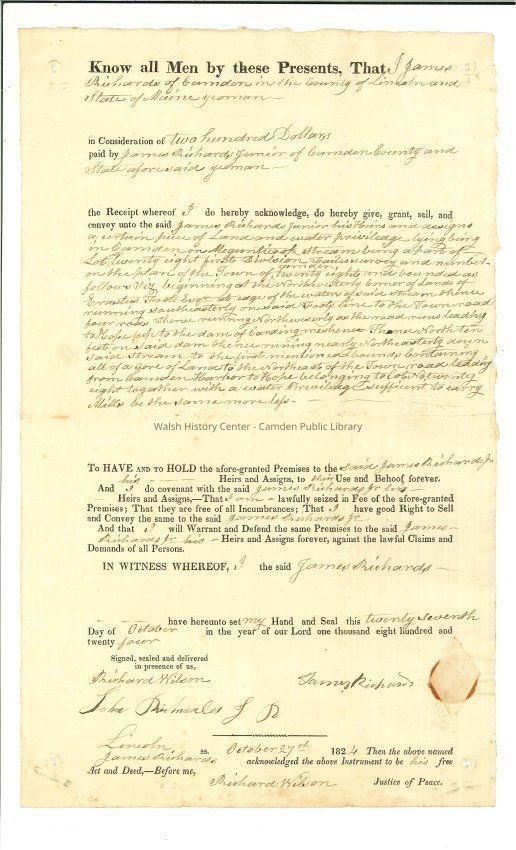 Know all Men by these Presents, That I James
Richards of Camden in the County of Lincoln and
State of Maine yeoman —
in Consideration of two hundred Dollars
paid by James Richards Junior of Camden County and
State aforesaid yeoman —
the Receipt whereof I do hereby acknowledge, do hereby give, grant, sell, and
convey unto the said James Richards Junior his Heirs and assigns
a certain piece of Land and water priviledge lying being
in Camden on Megunticook Stream being a part of
Lot Twenty eight first Division survey and number
on the plan of the Town of Camden Twenty eight and bounded as
follows Viz beginning at the Northwesterly Corner of Lands of
Erastus Foote Esqr at edge of the waters of said stream thence
running southeasterly on said Foots line to the Town road
four rods thence running Northwesterly as the road runs leading
to Hope up to the dam of Carding meshene Thence North ten
feet on said dam thence runing nearly Northeasterly down
said stream to the first mentioned bounds Containing
all of a Gore of Land to the Northeast of the Town road leading
from Camden Harbor to Hope belonging to lot No twenty
eight together with a water Privilege sufficent to carry
Mills be the same more less —
Walsh History Center - Camden Public Library
To HAVE AND TO HOLD the afore-granted Premises to the said James Richards Jr
his — Heirs and Assigns, to their Use and Behoof forever.
And I do covenant with the said James Richards Jr his —
Heirs and Assigns,—That I am — lawfully seized in Fee of the afore-granted
Premises; That they are free of all Incumbrances; That I have good Right to Sell
and Convey the same to the said James Richards Jr —
And that I will Warrant and Defend the same Premises to the said James —
Richards Jr his — Heirs and Assigns forever, against the lawful Claims and
Demands of all Persons.
IN WITNESS WHEREOF, I the said James Richards —
have hereunto set my Hand and Seal this twenty seventh
Day of October in the year of our Lord one thousand eight hundred and
twenty four
Signed, sealed and delivered
in presence of us,
Richard Wilson James Richards
Lincoln ss. October 27th 1824 Then the above named
James Richards acknowledged the above Instrument to be his free
Act and Deed,—Before me,
Richard Wilson Justice of Peace.